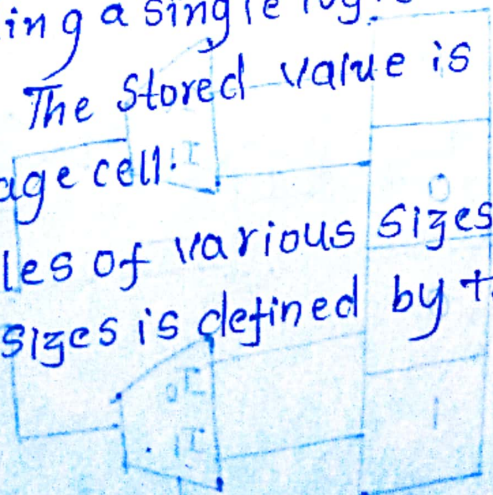 ing a single
The Stored value is
age cell.
les of various sizes
sizes is defined by